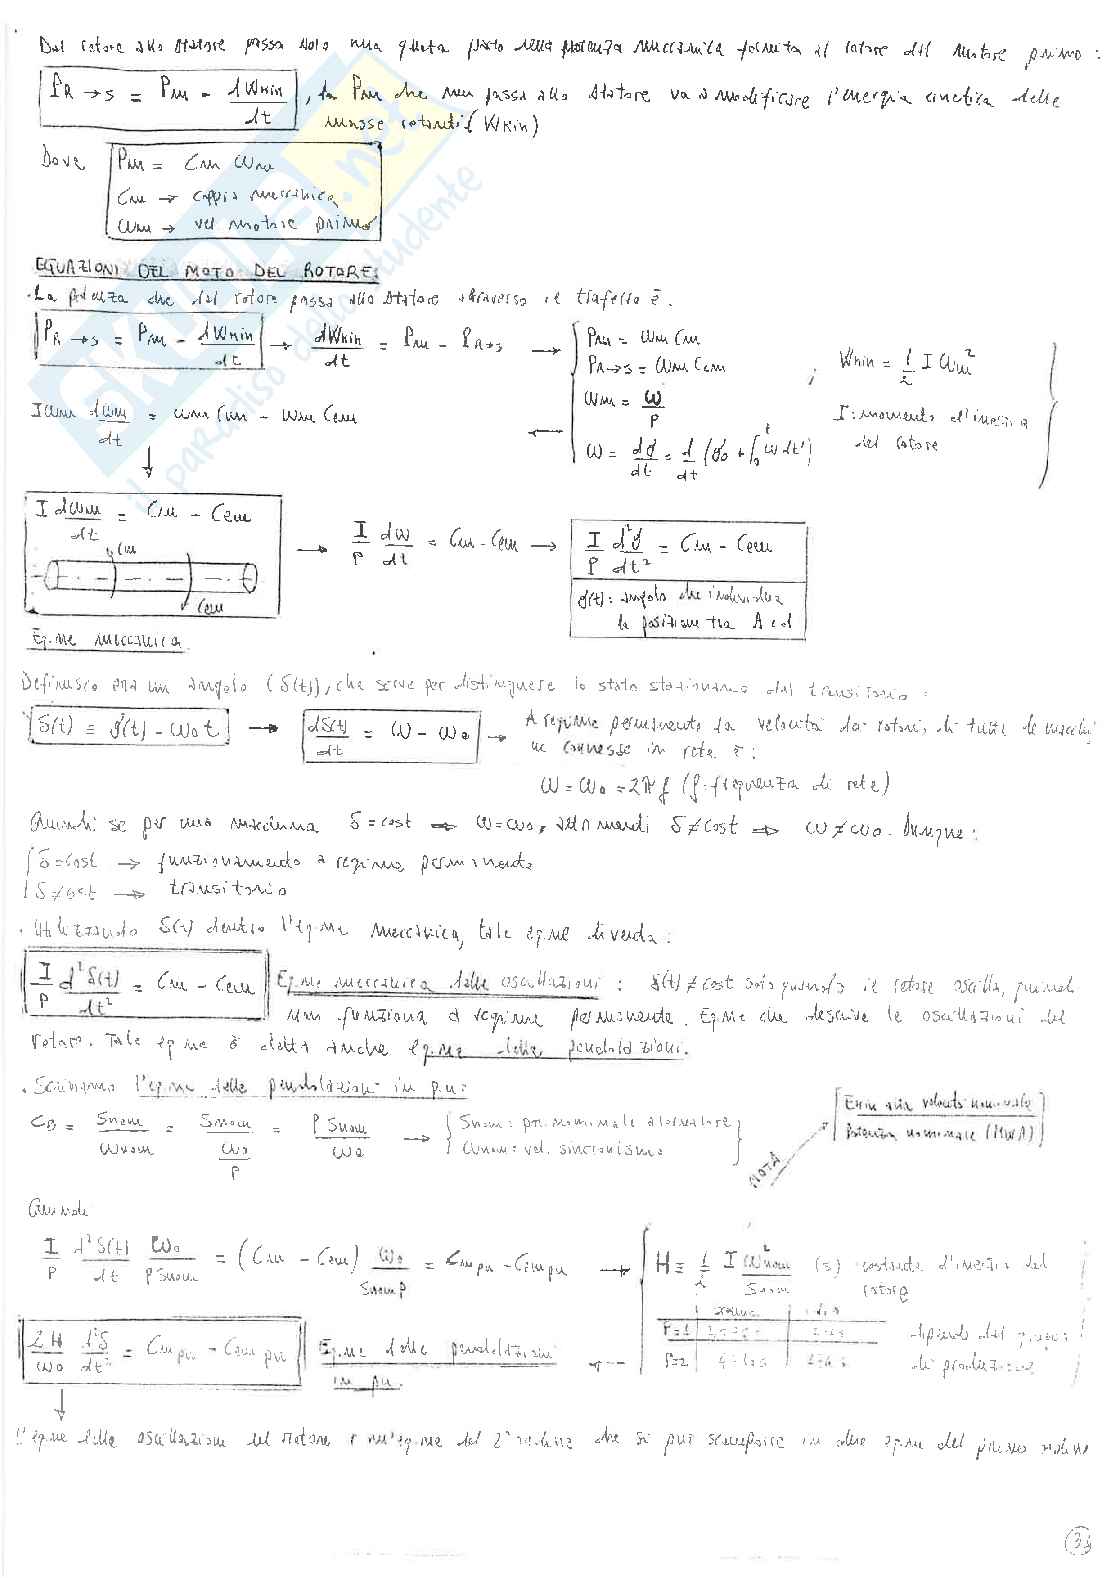 Dal rotore allo statore passa solo una quota parte della potenza meccanica fornita al rotore dal motore primo:
P_R→s = P_m - dW_kin/dt , la P_m che non passa allo statore va a modificare l'energia cinetica delle
masse rotanti (W_kin)
Dove P_m = C_m ω_m
C_m → coppia meccanica
ω_m → vel motore primo
EQUAZIONI DEL MOTO DEL ROTORE:
. La potenza che dal rotore passa allo statore attraverso il traferro è.
P_R→s = P_m - dW_kin/dt → dW_kin/dt = P_m - P_R→s → { P_m = ω_m C_m
P_R→s = ω_m C_em ; W_kin = 1/2 I ω_m²
ω_m = ω/P I: momento d'inerzia
del rotore
ω = dϑ/dt = d/dt (ϑ_0 + ∫_0^t ω dt')
I ω_m dω_m/dt = ω_m C_m - ω_m C_em ←
↓
I dω_m/dt = C_m - C_em → I/P dω/dt = C_m - C_em → I/P d²ϑ/dt² = C_m - C_em
C_m
C_em
ϑ(t): angolo che individua
la posizione tra A e d
Eq.ne meccanica
Definisco ora un angolo (δ(t)), che serve per distinguere lo stato stazionario dal transitorio:
δ(t) ≡ ϑ(t) - ω_0 t → dδ(t)/dt = ω - ω_0 → A regime permanente la velocità dei rotori, di tutte le macchi
ne connesse in rete è:
ω = ω_0 = 2πf (f: frequenza di rete)
Quindi se per una macchina δ = cost ⇒ ω = ω_0, altrimenti δ ≠ cost ⇒ ω ≠ ω_0. Dunque:
δ = cost → funzionamento a regime permanente
δ ≠ cost → transitorio
. Utilizzando δ(t) dentro l'eq.ne meccanica, tale eq.ne diventa:
I/P d²δ(t)/dt² = C_m - C_em Eq.ne meccanica delle oscillazioni : δ(t) ≠ cost solo quando il rotore oscilla, quindi
non funziona a regime permanente. Eq.ne che descrive le oscillazioni del
rotore. Tale eq.ne è detta anche eq.ne delle pendolazioni.
. Scriviamo l'eq.ne delle pendolazioni in p.u:
C_B = S_nom/ω_nom = S_nom/(ω_0/P) = P S_nom/ω_0 → { S_nom: pot. nominale alternatore
ω_nom: vel. sincronismo }
NOTA
Ekin alla velocità nominale
Potenza nominale (MVA)
Quindi
I/P d²δ(t)/dt ω_0/P S_nom = (C_m - C_em) ω_0/S_nom P = C_m pu - C_em pu → H ≡ 1/2 I ω²_nom/S_nom (s) costante d'inerzia del
rotore
P=1
P=2
dipende dal gruppo
di produzione
2H/ω_0 d²δ/dt² = C_m pu - C_em pu Eq.ne delle pendolazioni
in pu. ←
↓
L'eq.ne delle oscillazioni del rotore è un'eq.ne del 2° ordine che si può scomporre in due eq.ni del primo ordine
34
SKUOLA.net
il paradiso dello studente